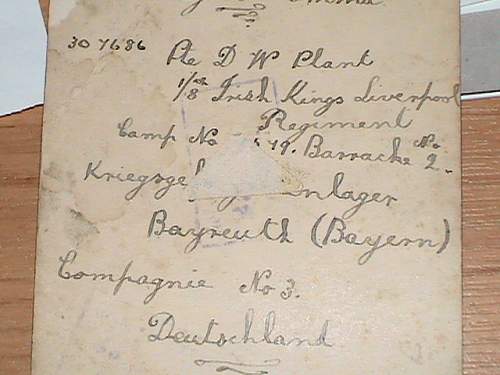 307686 Pte D W Plant
1/8th Irish Kings Liverpool
Regiment
Camp No 79. Barracke No. 2.
Kriegsge nlager
Bayreuth (Bayern)
Compagnie No 3.
Deutschland